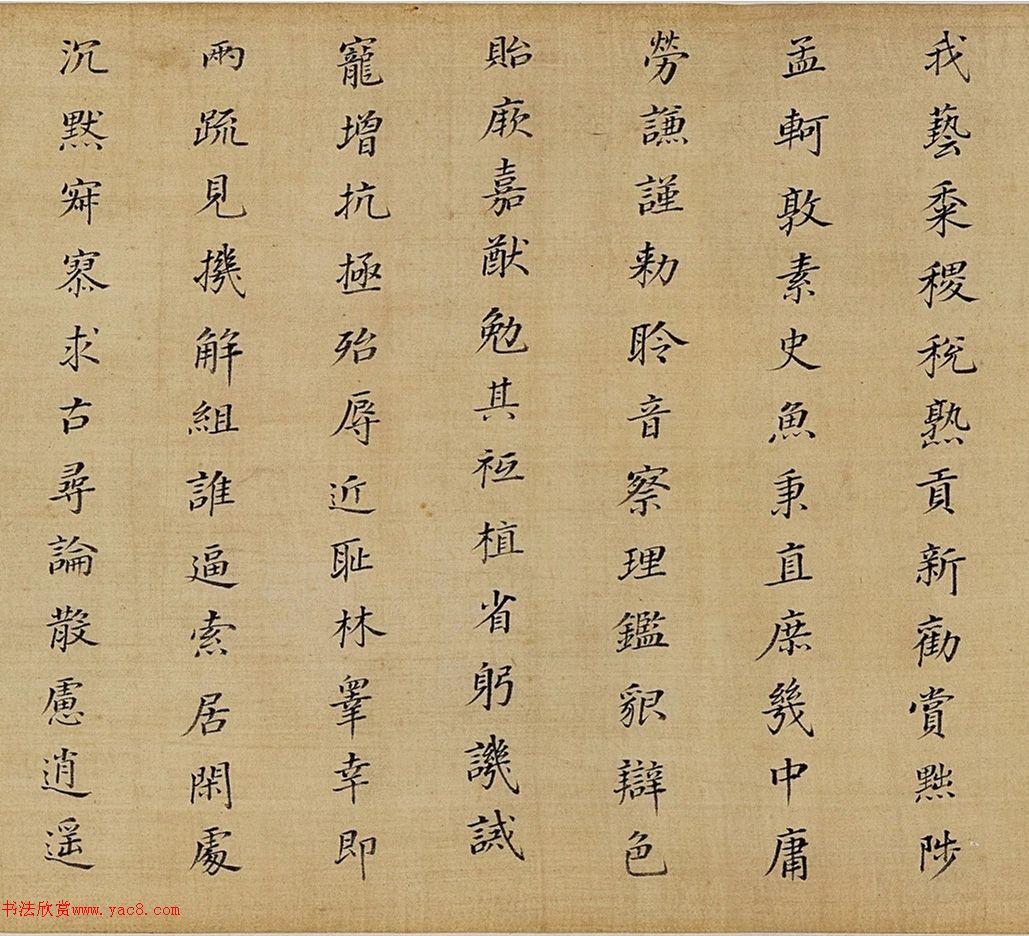 我藝黍稷稅熟貢新勸賞黜陟
孟軻敦素史魚秉直庶幾中庸
勞謙謹勅聆音察理鑑貌辯色
貽厥嘉猷勉其祗植省躬譏誡
寵增抗極殆辱近恥林睪幸即
兩疏見機解組誰逼索居閑處
沉默寂寥求古尋論散慮逍遥
书法欣赏www.yac8.com